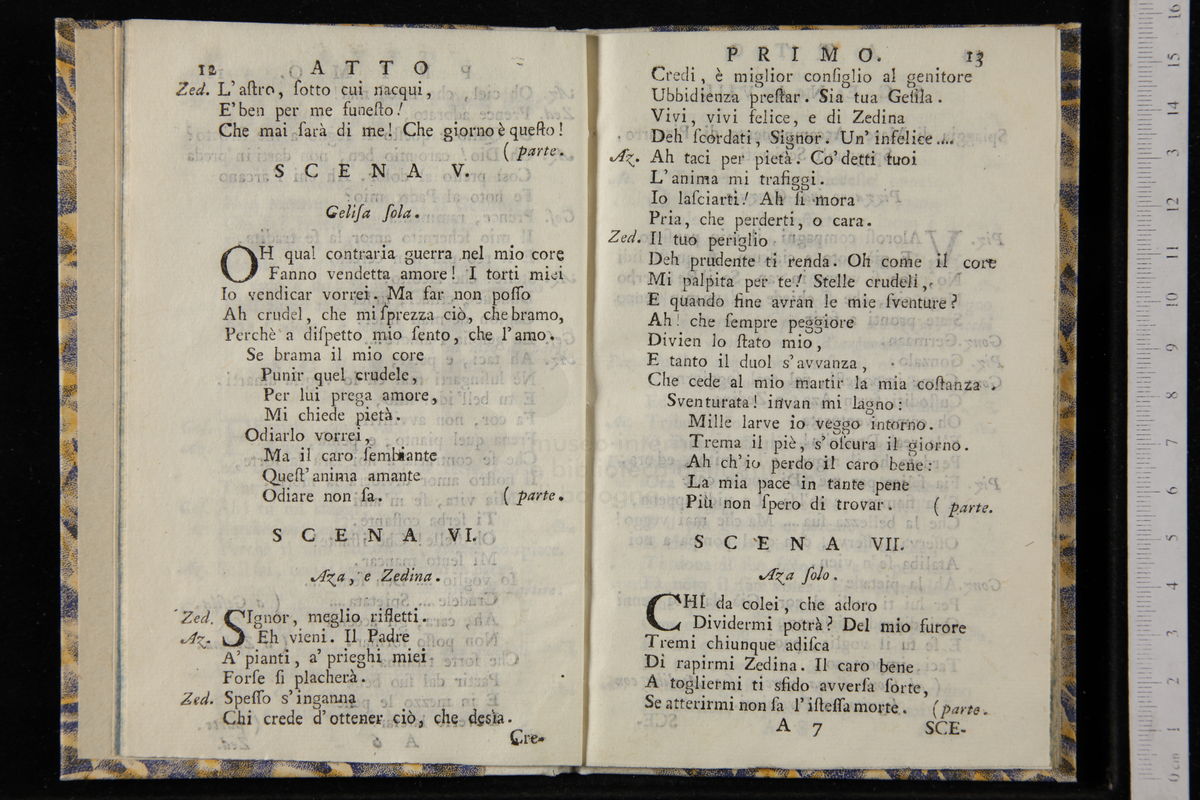 12 ATTO
Zed. L'aſtro, ſotto cui nacqui,
E' ben per me funeſto!
Che mai ſarà di me! Che giorno è queſto!
( parte.
SCENA V.
Geliſa ſola.
OH qual contraria guerra nel mio core
Fanno vendetta amore! I torti miei
Io vendicar vorrei. Ma far non poſſo
Ah crudel, che mi ſprezza ciò, che bramo,
Perchè a diſpetto mio ſento, che l'amo.
Se brama il mio core
Punir quel crudele,
Per lui prega amore,
Mi chiede pietà.
Odiarlo vorrei,
Ma il caro ſembiante
Queſt' anima amante
Odiare non ſa. ( parte.
SCENA VI.
Aza, e Zedina.
Zed. SIgnor, meglio rifletti.
Az. Eh vieni. Il Padre
A' pianti, a' prieghi miei
Forſe ſi placherà.
Zed. Speſſo s'inganna
Chi crede d'ottener ciò, che desìa.
Cre-
PRIMO. 13
Credi, è miglior conſiglio al genitore
Ubbidienza preſtar. Sia tua Geliſa.
Vivi, vivi felice, e di Zedina
Deh ſcordati, Signor. Un' infelice....
Az. Ah taci per pietà. Co' detti tuoi
L'anima mi trafiggi.
Io laſciarti! Ah ſi mora
Pria, che perderti, o cara.
Zed. Il tuo periglio
Deh prudente ti renda. Oh come il core
Mi palpita per te! Stelle crudeli,
E quando fine avran le mie ſventure?
Ah! che ſempre peggiore
Divien lo ſtato mio,
E tanto il duol s'avvanza,
Che cede al mio martir la mia coſtanza.
Sventurata! invan mi lagno:
Mille larve io veggo intorno.
Trema il piè, s'oſcura il giorno.
Ah ch'io perdo il caro bene:
La mia pace in tante pene
Più non ſpero di trovar. ( parte.
SCENA VII.
Aza ſolo.
CHI da colei, che adoro
Dividermi potrà? Del mio furore
Tremi chiunque adiſca
Di rapirmi Zedina. Il caro bene
A togliermi ti sfido avverſa ſorte,
Se atterirmi non ſa l'iſteſſa morte. (parte.
A 7 SCE-